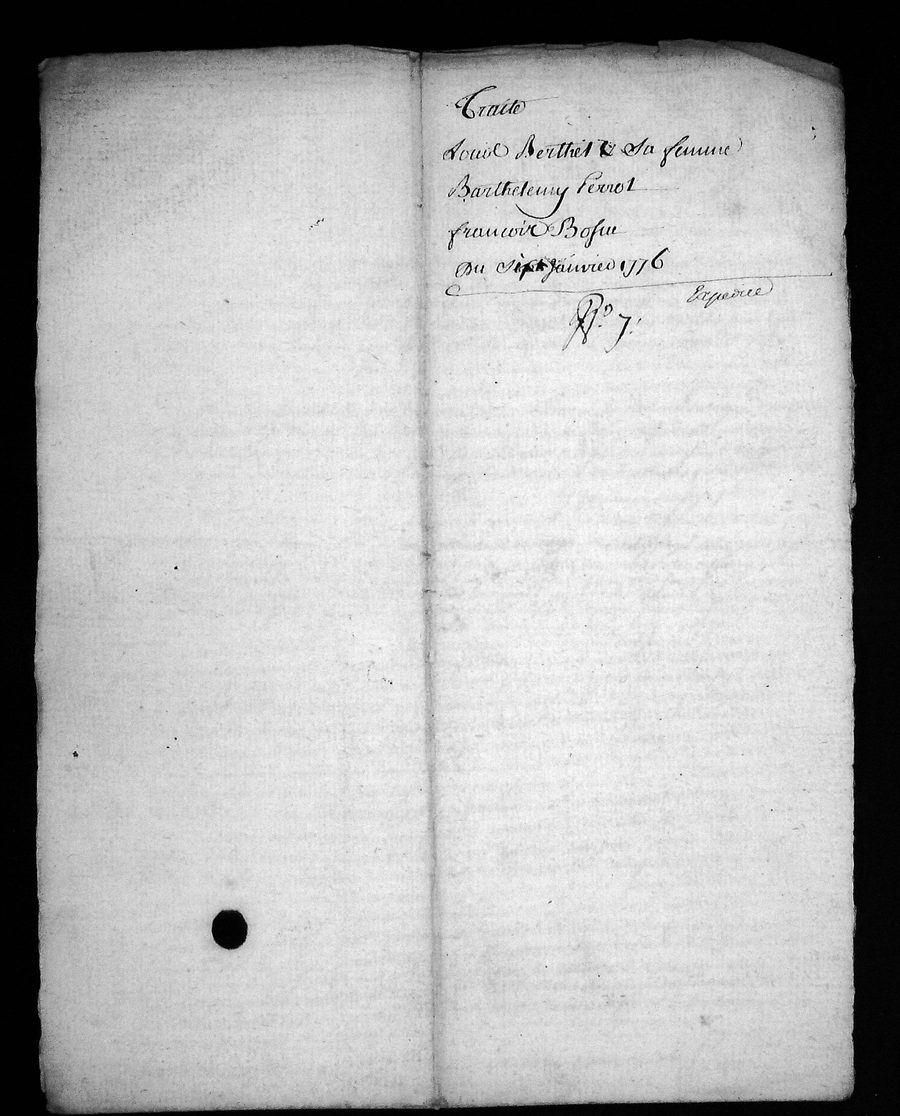 Traité
Louis Berthet & Sa femme
Barthelemy Perrot
francois Bossu
Du Sept Janvier 1776
Expediee
No. 7.